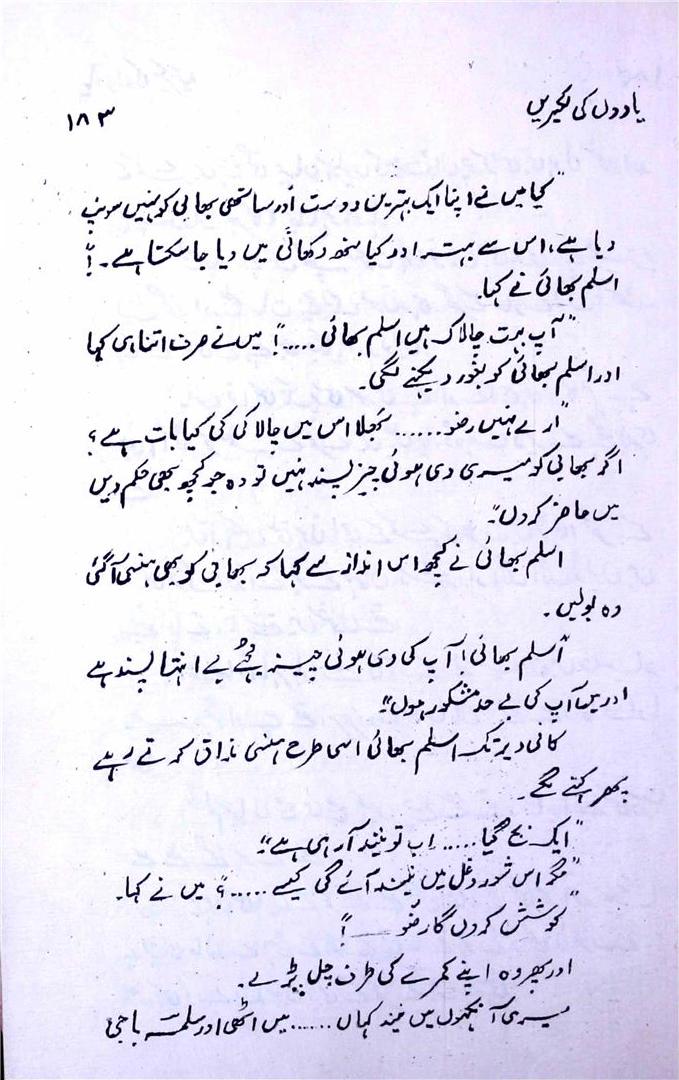 یادوں کی لکیریں
۱۸۳
"کیا میں نے اپنا ایک بہترین دوست اور ساتھی بھابی کو نہیں سونپ
دیا ہے، اس سے بہتر اور کیا منھ دکھائی میں دیا جا سکتا ہے۔!"
اسلم بھائی نے کہا۔
"آپ بہت چالاک ہیں اسلم بھائی .....!" میں نے صرف اتنا ہی کہا
اور اسلم بھائی کو بغور دیکھنے لگی۔
"ارے نہیں رضو ....... بھلا اس میں چالاکی کی کیا بات ہے؟
اگر بھابی کو میری دی ہوئی چیز پسند نہیں تو وہ جو کچھ بھی حکم دیں
میں حاضر کردوں"۔
اسلم بھائی نے کچھ اس انداز سے کہا کہ بھابی کو بھی ہنسی آگئی
وہ بولیں۔
"اسلم بھائی! آپ کی دی ہوئی چیز مجھے بے انتہا پسند ہے
اور میں آپ کی بے حد مشکور ہوں"
کافی دیر تک اسلم بھائی اسی طرح ہنسی مذاق کرتے رہے
پھر کہنے لگے۔
"ایک بج گیا ..... اب تو نیند آرہی ہے"
"مگر اس شور و غل میں نیند آئے گی کیسے .....؟" میں نے کہا۔
"کوشش کروں گا رضو ــــ!"
اور پھر وہ اپنے کمرے کی طرف چل پڑے۔
میری آنکھوں میں نیند کہاں ...... میں اٹھی اور سلمہ باجی